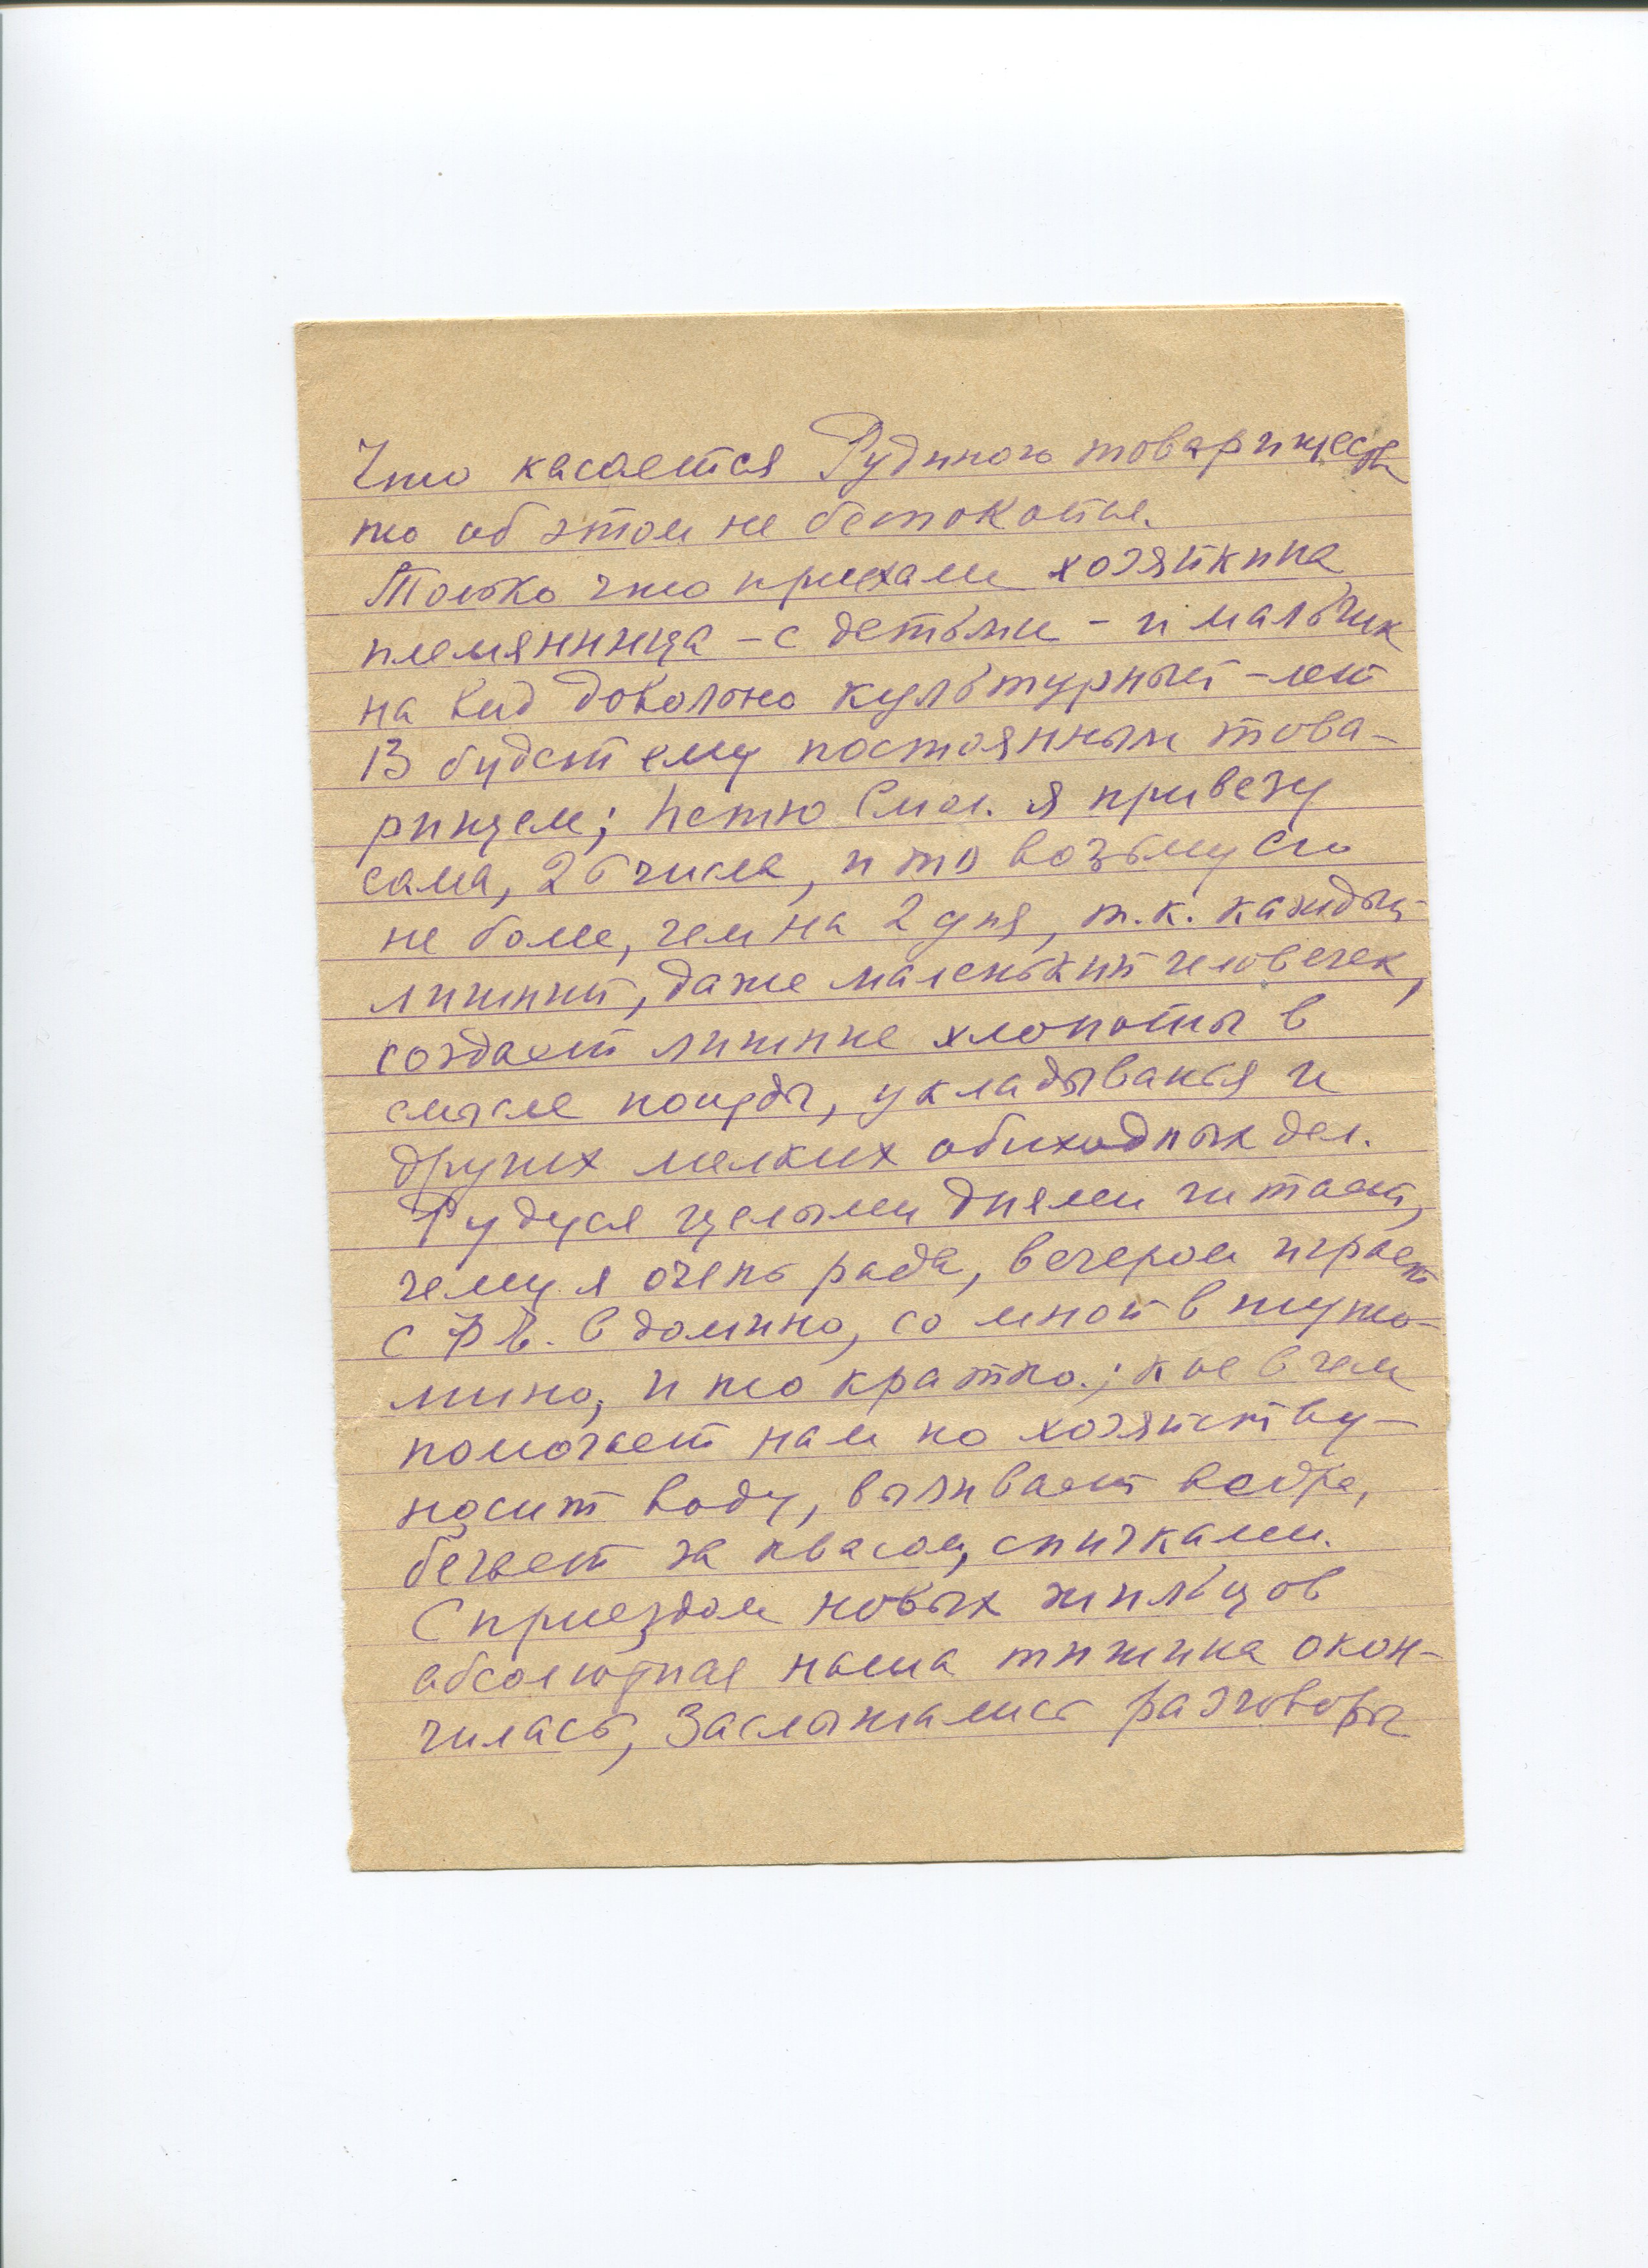 Что касается Рудиного товарищества
то об этом не беспокойся.
Только что приехали хозяйкина
племянница – с детьми – и мальчик
на вид довольно культурный – лет
13 будет ему постоянным това-
рищем; Петю Смол. я привезу
сама, 26 числа, и то возьму его
не более, чем на 2 дня, т.к. каждый
лишний, даже маленький человечек,
создает лишние хлопоты в
смысле посуды, укладыванья и
других мелких обиходных дел.
Рудуся целыми днями читает,
чему я очень рада, вечером играет
с в домино, со мной в
и то кратко.; кое в чем
помогает нам по хозяйству –
носит воду, выливает ведра,
бегает за квасом, спичками.
С приездом новых жильцов
абсолютная наша тишина окон-
чилась, Заслышались разговоры